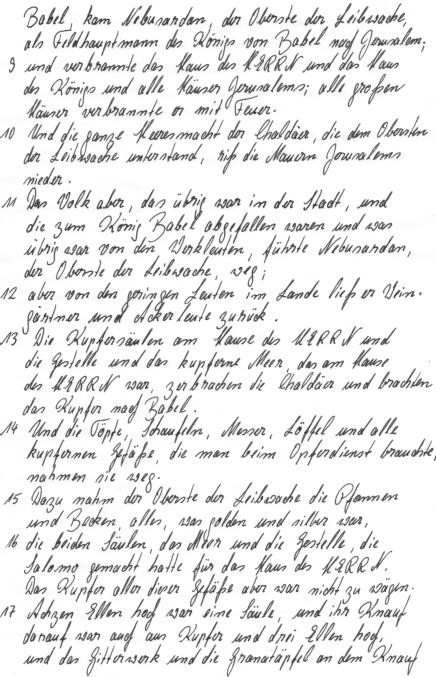 Babel, kam Nebusardan, der Oberste der Leibwache,
als Feldhauptmann des Königs von Babel nach Jerusalem;
9 und verbrannte das Haus des HERRN und das Haus
des Königs und alle Häuser Jerusalems; alle großen
Häuser verbrannte er mit Feuer.
10 Und die ganze Heeresmacht der Chaldäer, die dem Obersten
der Leibwache unterstand, riß die Mauern Jerusalems
nieder.
11 Das Volk aber, das übrig war in der Stadt, und
die zum König Babel abgefallen waren und was
übrig war von den Werkleuten, führte Nebusardan,
der Oberste der Leibwache, weg;
12 aber von den geringen Leuten im Lande ließ er Wein-
gärtner und Ackerleute zurück.
13 Die Kupfersäulen am Hause des HERRN und
die Gestelle und das kupferne Meer, das am Hause
des HERRN war, zerbrachen die Chaldäer und brachten
das Kupfer nach Babel.
14 Und die Töpfe, Schaufeln, Messer, Löffel und alle
kupfernen Gefäße, die man beim Opferdienst brauchte,
nahmen sie weg.
15 Dazu nahm der Oberste der Leibwache die Pfannen
und Becken, alles, was golden und silber war,
16 die beiden Säulen, das Meer und die Gestelle, die
Salomo gemacht hatte für das Haus des HERRN.
Das Kupfer aller dieser Gefäße aber war nicht zu wägen.
17 Achzen Ellen hoch war eine Säule, und ihr Knauf
darauf war auch aus Kupfer und drei Ellen hoch,
und das Gitterwerk und die Granatäpfel an dem Knauf